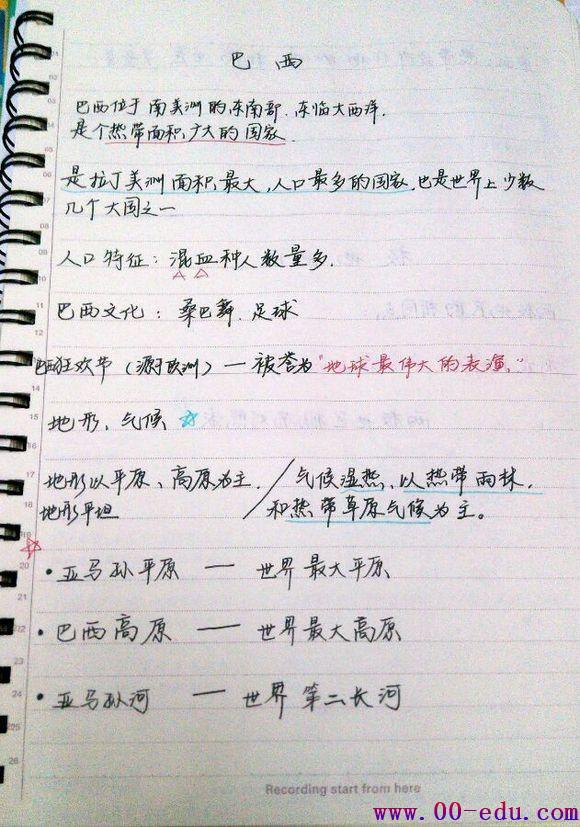 巴西
巴西位于南美洲的东南部.东临大西洋.
是个热带面积广大的国家.
是拉丁美洲面积最大,人口最多的国家.也是世界上少数
几个大国之一
人口特征:混血种人数量多.
巴西文化:桑巴舞.足球
巴西狂欢节(源于欧洲)—被誉为"地球最伟大的表演."
地形、气候
地形以平原、高原为主. / 气候湿热,以热带雨林.
地形平坦 和热带草原气候为主。
·亚马孙平原 — 世界最大平原
·巴西高原 — 世界最大高原
·亚马孙河 — 世界第二长河
Recording start from here
www.00-edu.com